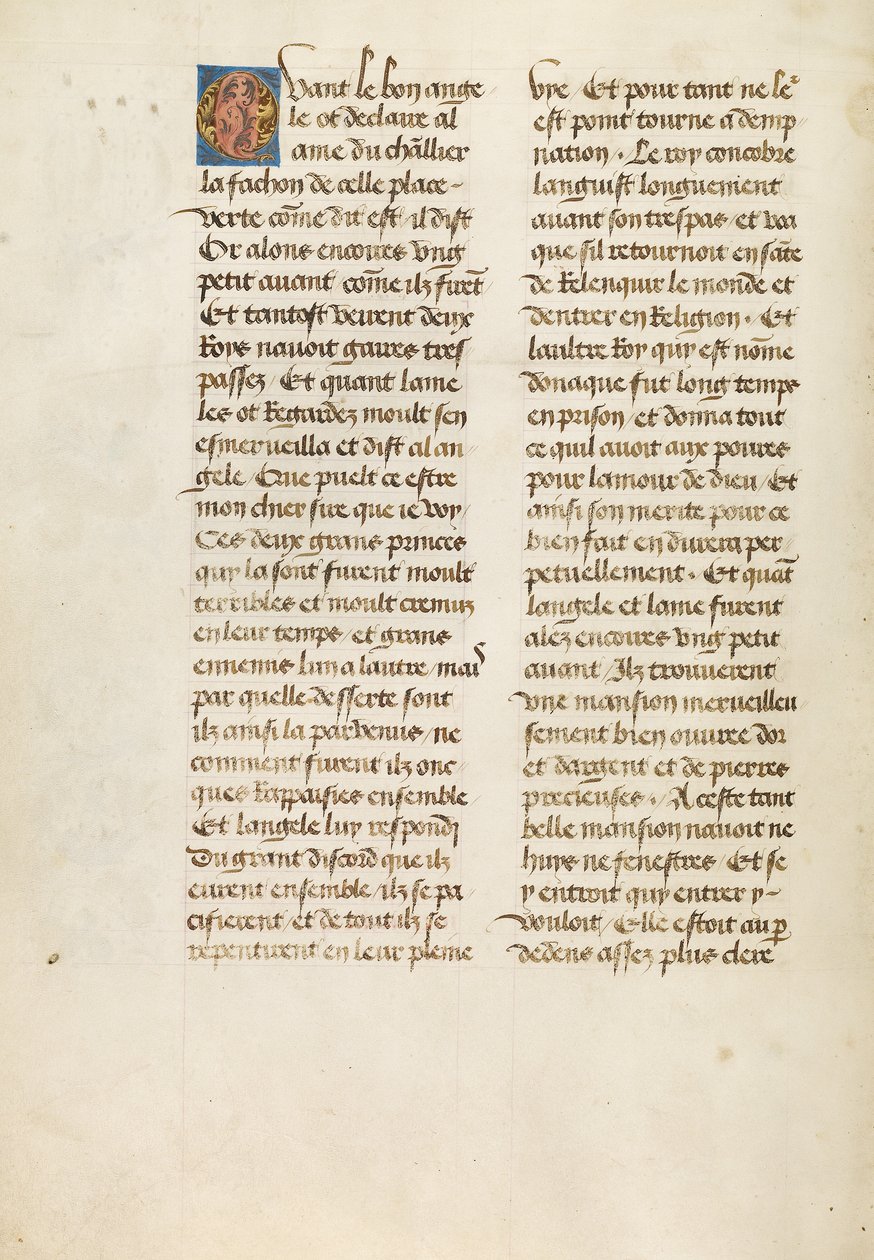 Quant le bon ange-
le ot declaire a l
ame du chãllier
la fachon de celle place
verte cõme dit est / il dist
Or alons encores vng
petit auant / cõme ilz furẽt
Et tantost veirent deux
Roys nauoit gaires tres
passez / Et quant lame
les ot Regardez moult sen
esmerueilla et dist al an-
gele / Que puelt ce estre
mon chier sire que ie voy /
Ces deux grans princes
quy la sont furent moult
terribles et moult cremuz
en leur temps / et grans
ennemis lun a lautre / mais
par quelle desserte sont
ilz ainsi la paruenus / ne
comment furent ilz onc-
ques Rappaisies ensemble
Et langele luy respondj
Du grant discord que ilz
eurent ensemble / ilz se pa-
cifierent / et de tout ilz se
repentirent en leur pleine
vye / Et pour tant ne le²
est point tourne a demp-
nation / . Le roy concobre
languist longuement
auant son trespas / et voa
que sil retournoit en sãte
de Relenquir le monde et
dentrer en Religion . Et
laultre Roy quy est nõme
donaque fut long temps
en prison / et donna tout
ce quil auoit aux poures
pour lamour de dieu / Et
ainsi son merite pour ce
bien fait en durera per-
petuellement . Et quãt
langele et lame furent
alez encores vng petit
auant / Ilz trouuerent
vne mansion merueilleu
sement bien ouuree dor
et dargent et de pierres
precieuses . / A ceste tant
belle mansion nauoit ne
huys ne fenestres / Et se
y entroit quy entrer y
vouloit / Elle estoit au ꝑ
dedens assez plus clere